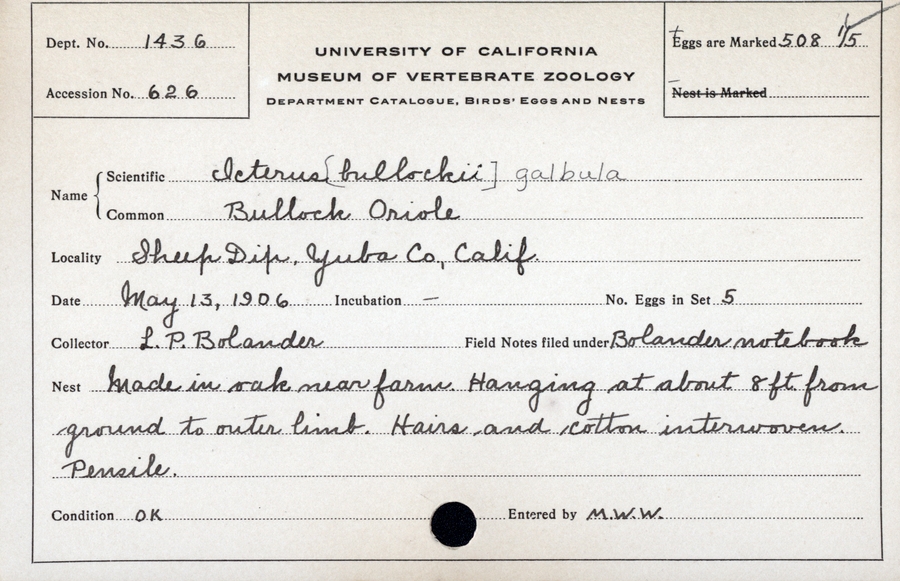 Dept. No. 1436
Accession No. 626
UNIVERSITY OF CALIFORNIA
MUSEUM OF VERTEBRATE ZOOLOGY
DEPARTMENT CATALOGUE, BIRDS' EGGS AND NESTS
Eggs are Marked 508 1/5
Nest is Marked
Name
Scientific Icterus [bullockii] galbula
Common Bullock Oriole
Locality Sheep Dip, Yuba Co, Calif.
Date May 13, 1906 Incubation — No. Eggs in Set 5
Collector L. P. Bolander Field Notes filed under Bolander notebook
Nest Made in oak near farm. Hanging at about 8 ft. from
ground to outer limb. Hairs and cotton interwoven.
Pensile.
Condition OK Entered by M.W.W.